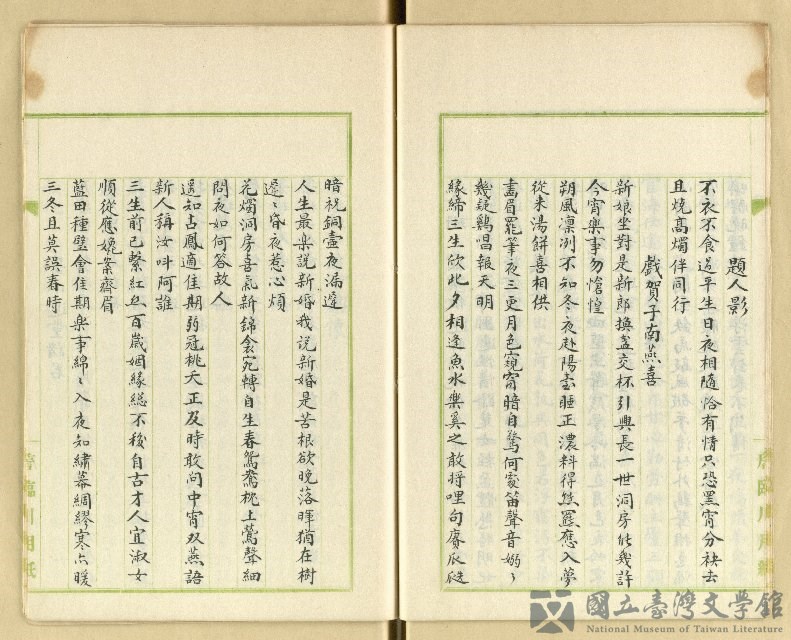 題人影
不衣不食過平生日夜相隨恰有情只恐黑宵分袂去
且燒高燭伴同行
戲賀子南燕喜
新娘坐對是新郎換盞交杯引興長一世洞房能幾許
今宵樂事勿愴惶
朔風凜冽不知冬夜赴陽臺睡正濃料得熊羆應入夢
從來湯餅喜相供
畵眉罷筆夜三更月色窺窗暗自驚何處笛聲音嫋々
幾疑鷄唱報天明
緣締三生欣此夕相逢魚水樂奚之敢將哩句賡瓜瓞
暗祝銅壺夜漏遲
人生最樂說新婚我說新婚是苦根欲晚落暉猶在樹
遲々昏夜惹心煩
花燭洞房喜氣新錦衾宛轉自生春鴛鴦桃上鶯聲細
問夜如何答故人
遥知占鳳適佳期弱冠桃夭正及時敢问中宵双燕語
新人稱汝呌阿誰
三生前已繫紅絲百歲姻緣総不移自古才人宜淑女
順從應媲案齊眉
藍田種璧會佳期樂事綿々入夜知繡幕綢繆寒亦暖
三冬且莫誤春時
臨川用紙
國立臺灣文學館
National Museum of Taiwan Literature